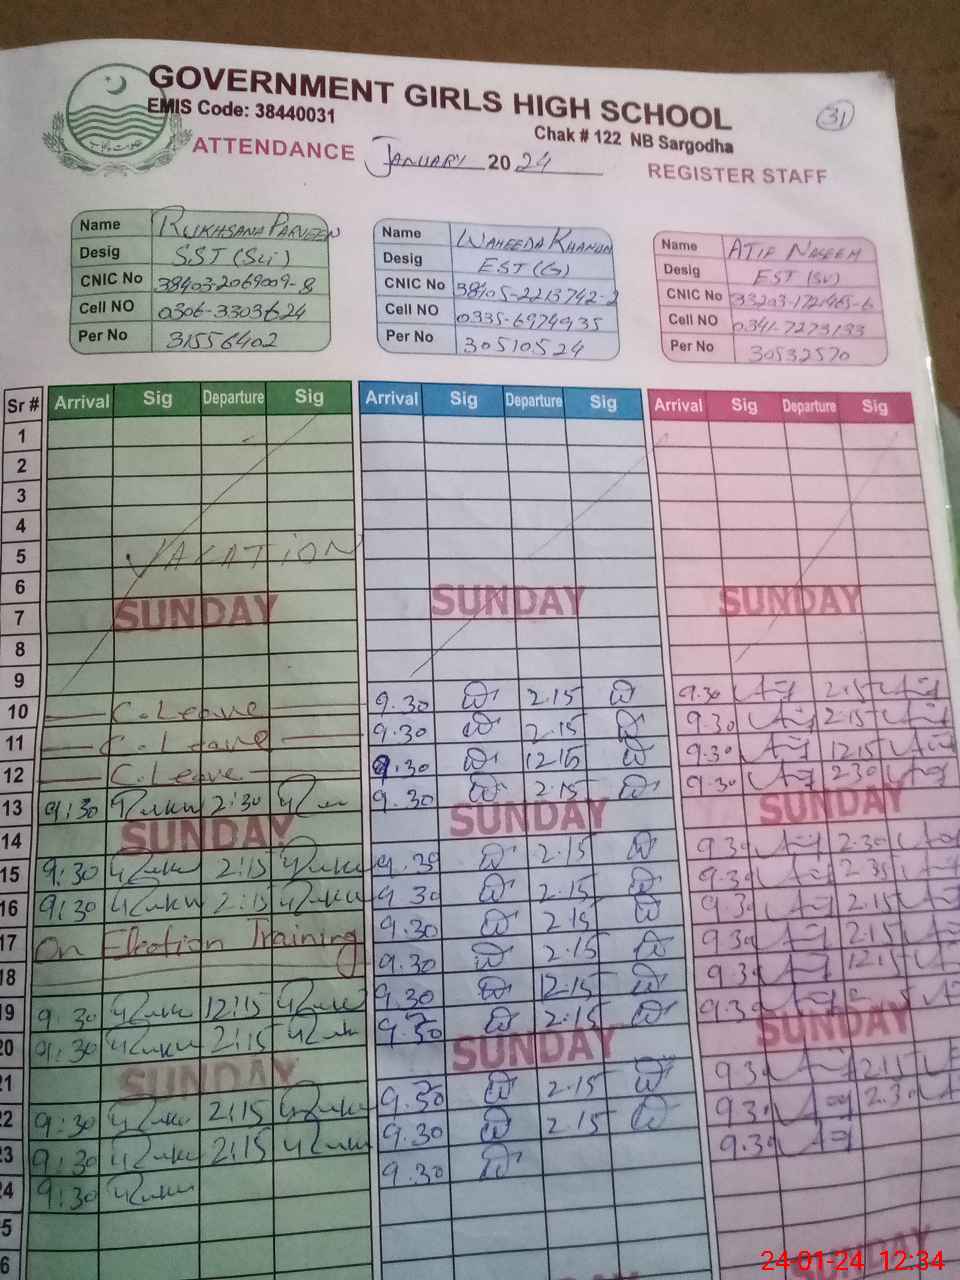 GOVERNMENT GIRLS HIGH SCHOOL
EMIS Code: 38440031
31
Chak # 122 NB Sargodha
ATTENDANCE JANUARY 2024 REGISTER STAFF
Name RUKHSANA PARVEEN
Desig SST (Sci)
CNIC No 38403-2069009-8
Cell NO 0306-3303624
Per No 31556402
Name WAHEEDA KHANUM
Desig EST (G)
CNIC No 38405-2213742-2
Cell NO 0335-6974935
Per No 30510524
Name ATIF NASEEM
Desig EST (SV)
CNIC No
Cell NO 0341-7273133
Per No 30532570
Sr # Arrival Sig Departure Sig Arrival Sig Departure Sig Arrival Sig Departure Sig
1
2
3
4
5 VACATION
6
7 SUNDAY SUNDAY SUNDAY
8
9 9.30 2.15 9.30 2.15
10 C. Leave 9.30 2.15 9.30 2.15
11 C. Leave 9.30 12 15 9.30 12 15
12 C. Leave 9.30 2.15 9.30 2 30
13 9:30 2:30
14 SUNDAY SUNDAY SUNDAY
15 9:30 2:15 9.30 2.15 9.30 2.30
16 9:30 2:15 9.30 2.15 9.30
17 On Election Training 9.30 2.15 9.30 2.15
18 9.30 2.15 9.30 2.15
19 9:30 12:15 9.30 12.15 9.30 12.15
20 9:30 2:15 9.30 2.15 9.30
21 SUNDAY SUNDAY SUNDAY
22 9:30 2:15 9.30 2.15 9.30 2.15
23 9:30 2:15 9.30 2.15 9.30 2.30
24 9:30 9.30 9.30
5
6 SUNDAY SUNDAY
24-01-24 12:34